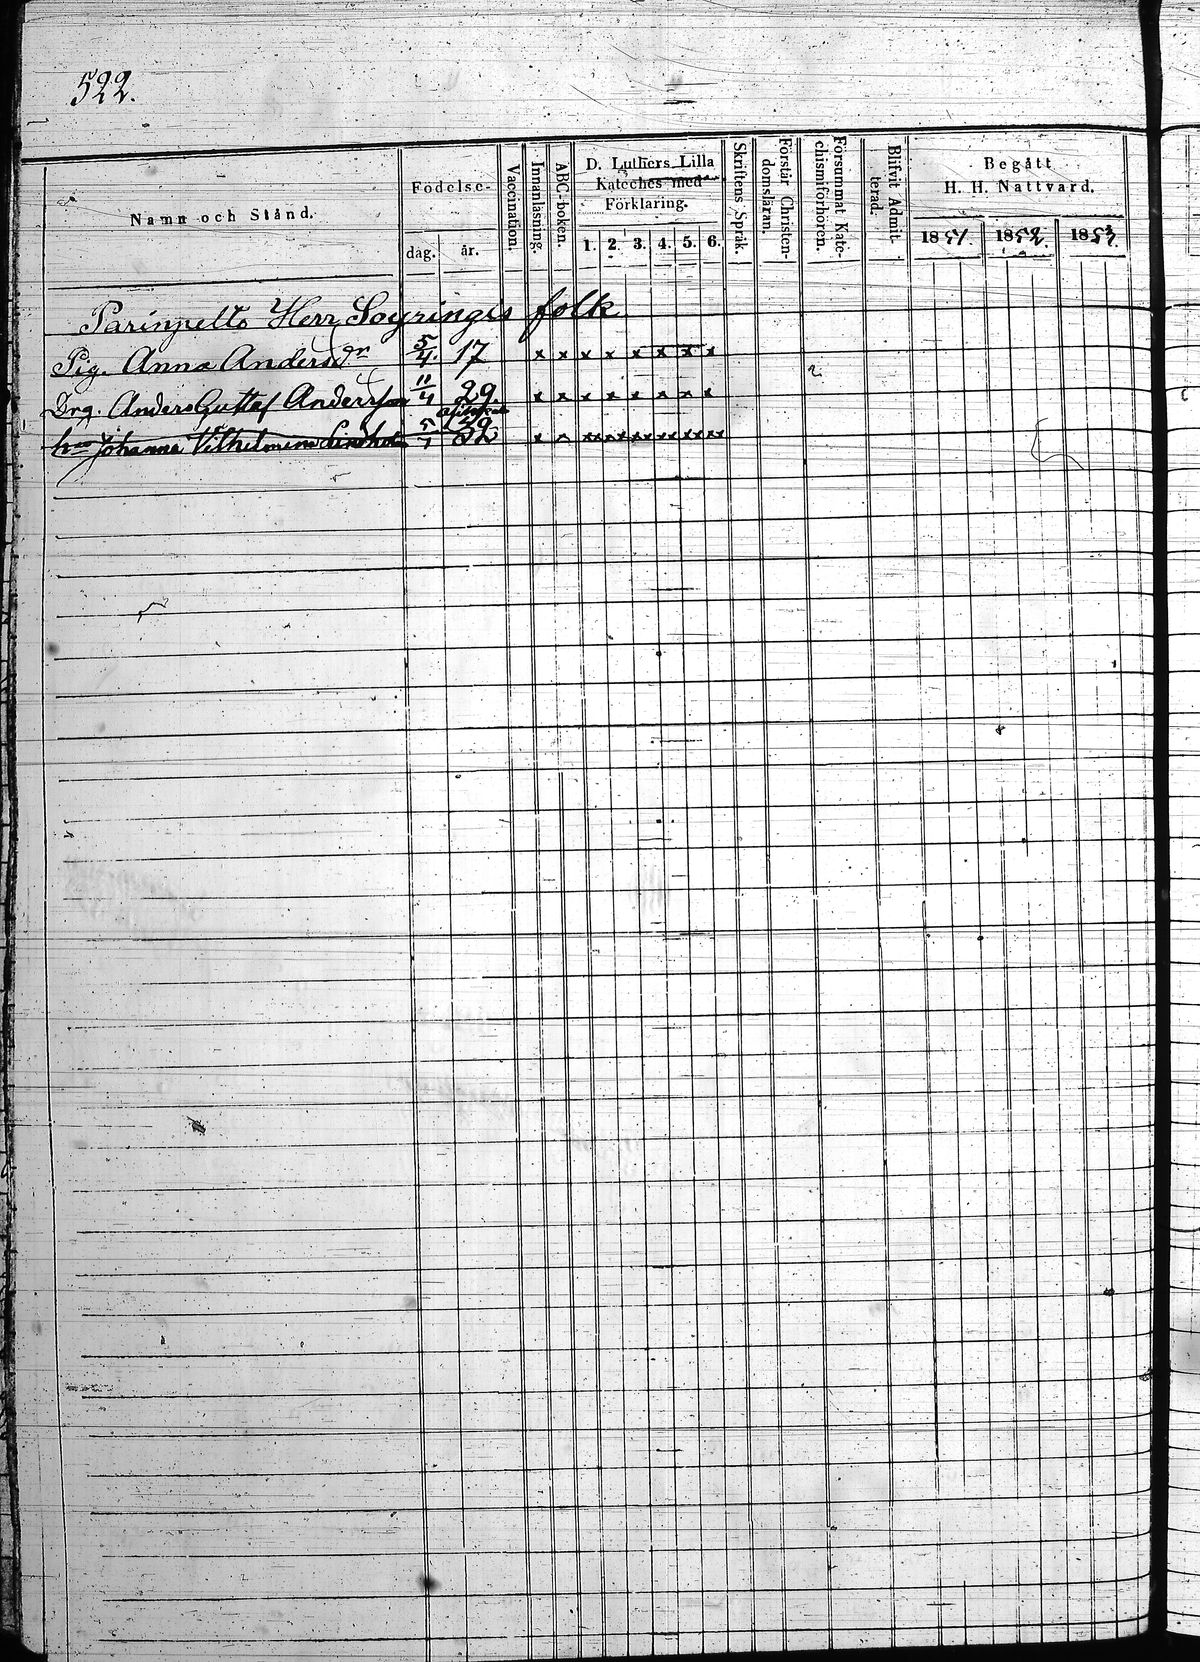 522.
Namn och Stånd.
Födelse-
dag. år.
Vaccination.
Innanläsning.
ABC-boken.
D. Luthers Lilla
Kateches med
Förklaring.
1. 2. 3. 4. 5. 6.
Skriftens Språk.
Förstår Christen-
domsläran.
Försummat Kate-
chismiförhören.
Blifvit Admit-
terad.
Begått
H. H. Nattvard.
1851. 1852 1853
Herr folk
Pig. Anna Andersdr 5/4. 17 x x x x x x x x
Drg. Anders Gustaf Andersson 11/4 29. x x x x x x x x
Johanna Vilhelmina